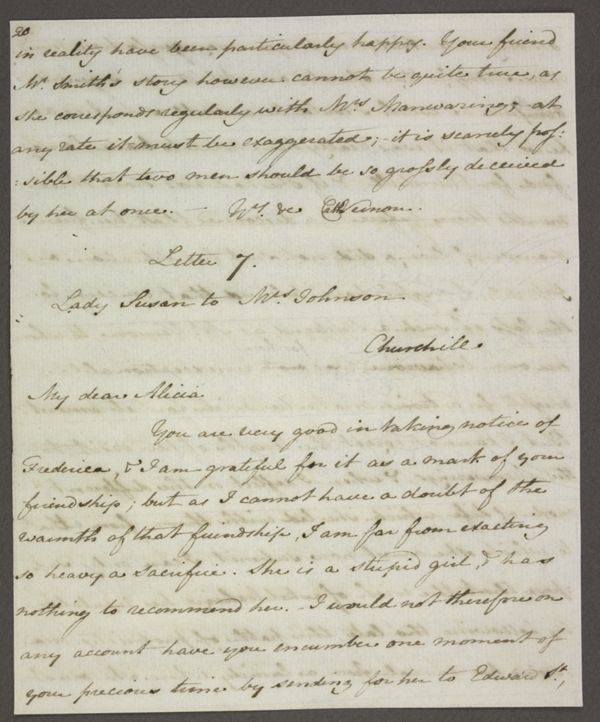 20
in reality have been particularly happy. Your friend
Mr Smith's story however cannot be quite true, as
she corresponds regularly with Mrs Manwaring; at
any rate it must be exaggerated; it is scarcely pos:
:sible that two men should be so grossly deceived
by her at once. — Yrs &c Cath Vernon.
Letter 7.
Lady Susan to Mrs Johnson
Churchill.
My dear Alicia
You are very good in taking notice of
Frederica, & I am grateful for it as a mark of your
friendship; but as I cannot have a doubt of the
warmth of that friendship, I am far from exacting
so heavy a sacrifice. She is a stupid girl, & has
nothing to recommend her. - I would not therefore on
any account have you encumber one moment of
your precious time by sending for her to Edward St,